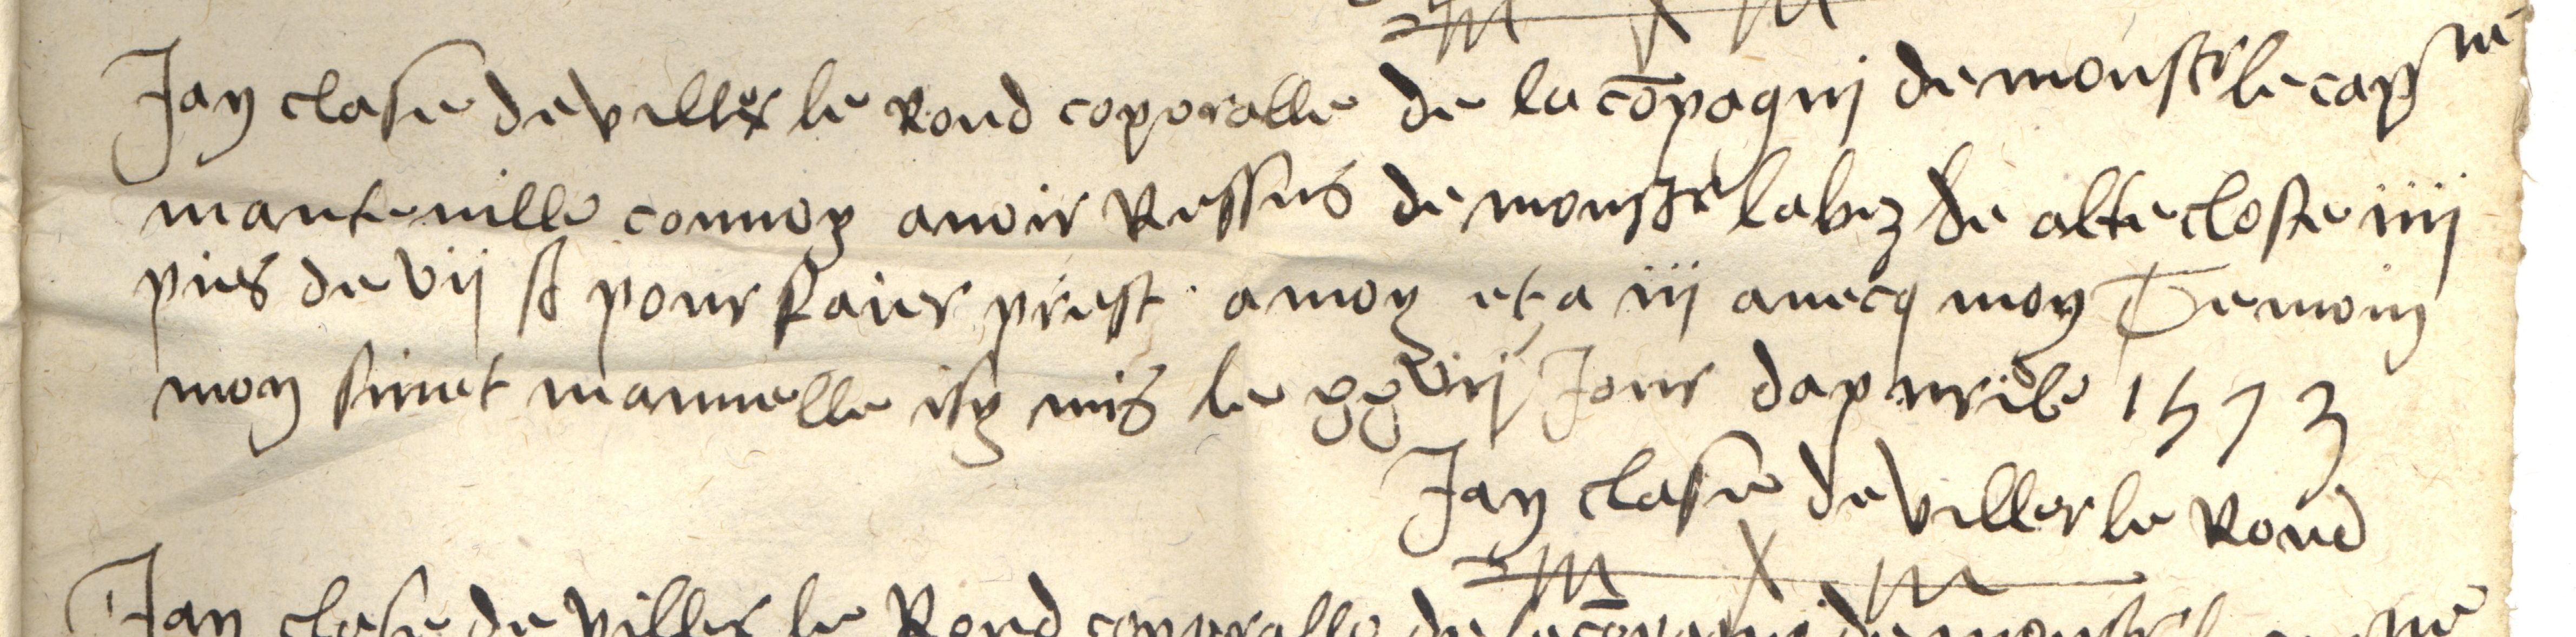 Jan clasen de viller le Rond coporalle de la cōpagnij de monsr le cappne
manteuille connoy auoir Ressus de monsr labez de alte closte iiii
pies de vij st pour faier prest a moy et a iij auecq moy Temoin
mon sinnet mannuelle isy mis le xxviij Jour dap urile 1573
Jan clasen de viller le Rond
Jan clasen de viller le Rond coporalle de la cōpagnij de monsr